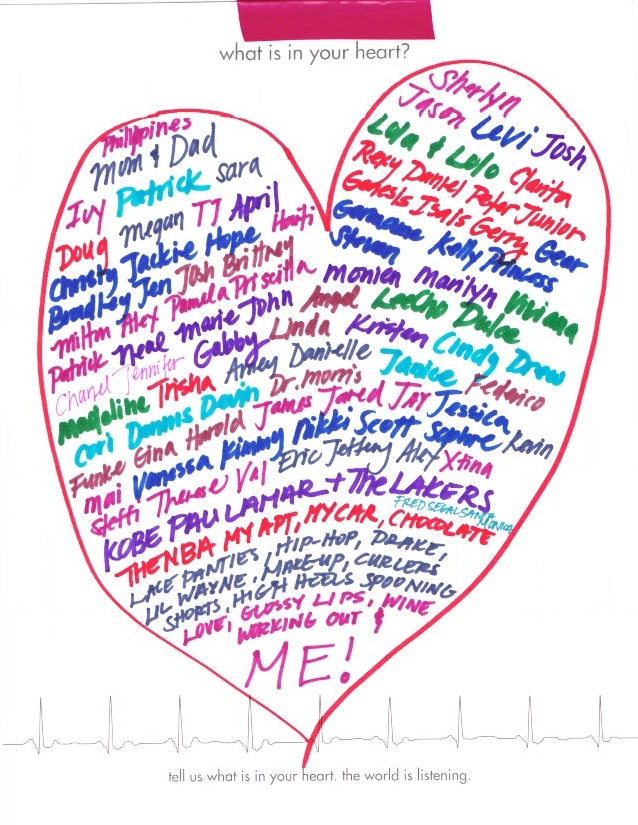 what is in your heart?
Sherlyn
Philippines
Jason Levi Josh
Mom & Dad
Lola & Lolo Clarita
Ivy Patrick Sara
Rexy Daniel Peter Junior
Doug Megan TJ April Haiti
Genesis Isais Gerry Gear
Christy Jackie Hope
Germaine Kelly Princess
Bradley Jen Josh Brittney
Steven
Milton Alex Pamela Priscilla
Monica Marilyn Viviana
Patrick Neal Marie John Angel LeeCho Dulce
Chanel Jennifer Gabby Linda Kristen Cindy Drew
Madeline Trisha Ashley Danielle Janice Federico
Cori Dennis Devin Dr. Morris
Funke Gina Harold James Jared JAY Jessica
Mai Vanessa Kimmy Nikki Scott Sophie Kevin
Steffi Therese Val Eric Jeffery Alex Xtina
KOBE PAU LAMAR + THE LAKERS
FRED SEGAL SANTA MONICA
THE NBA MY APT, MY CAR, CHOCOLATE
LACE PANTIES, HIP-HOP, DRAKE,
LIL WAYNE, MAKE-UP, CURLERS
SHORTS, HIGH HEELS SPOONING
LOVE, GLOSSY LIPS, WINE
WORKING OUT &
ME!
tell us what is in your heart. the world is listening.